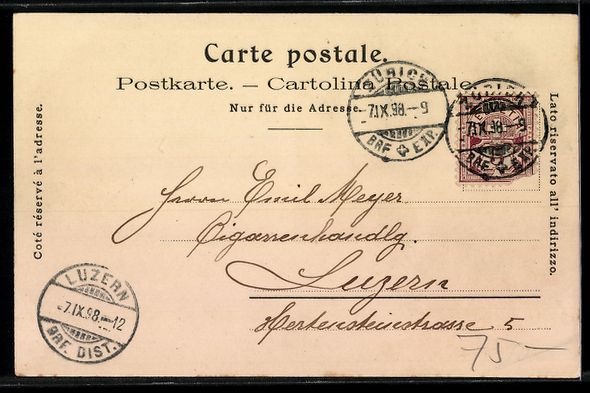 Carte postale.
Postkarte. — Cartolina Postale.
Nur für die Adresse.
Coté réservé à l'adresse.
Lato riservato all' indirizzo.
ZÜRICH
-7.IX.98.-9
BRF. EXP.
ZÜRICH
-7.IX.98.-9
BRF. EXP.
HELVETIA
Herrn Emil Meyer
Cigarrenhandlg.
Luzern
Hertensteinstrasse 5
LUZERN
-7.IX.98.-12
BRF. DIST.
75—